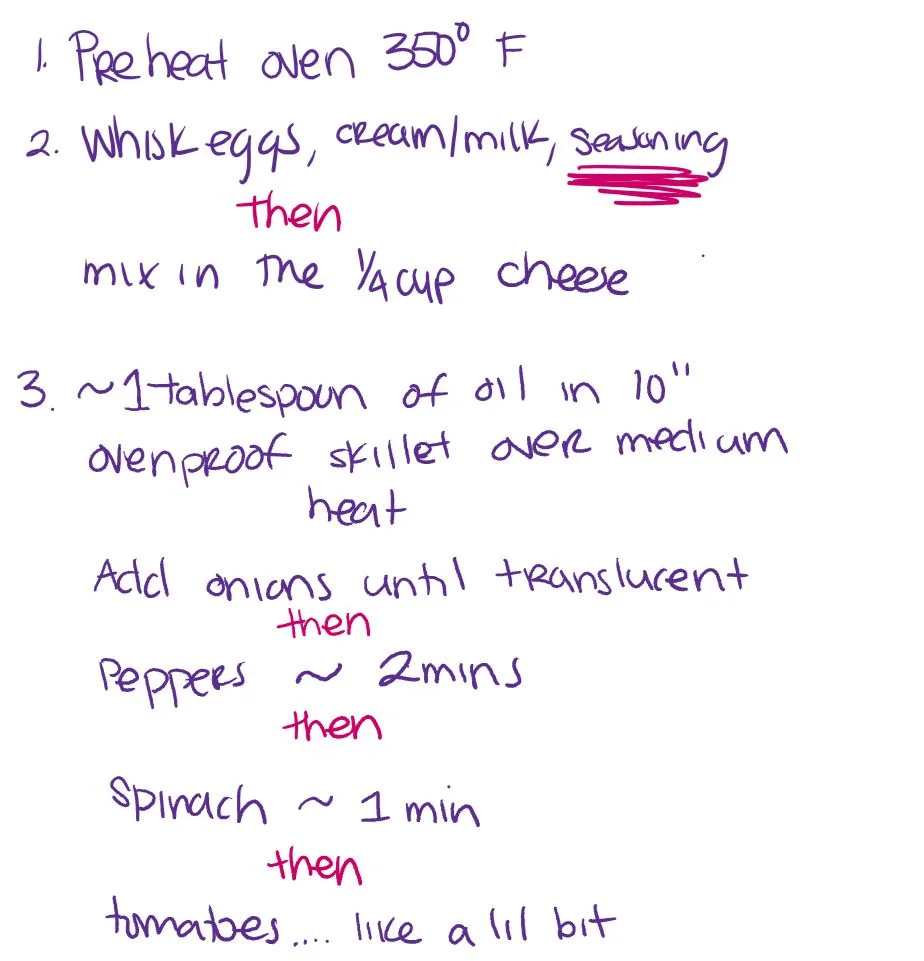 1. Preheat oven 350° F
2. Whisk eggs, cream/milk, seasoning
then
mix in the 1/4 cup cheese
3. ~1 tablespoon of oil in 10"
ovenproof skillet over medium
heat
Add onions until translucent
then
Peppers ~ 2mins
then
Spinach ~ 1 min
then
tomatoes.... like a lil bit